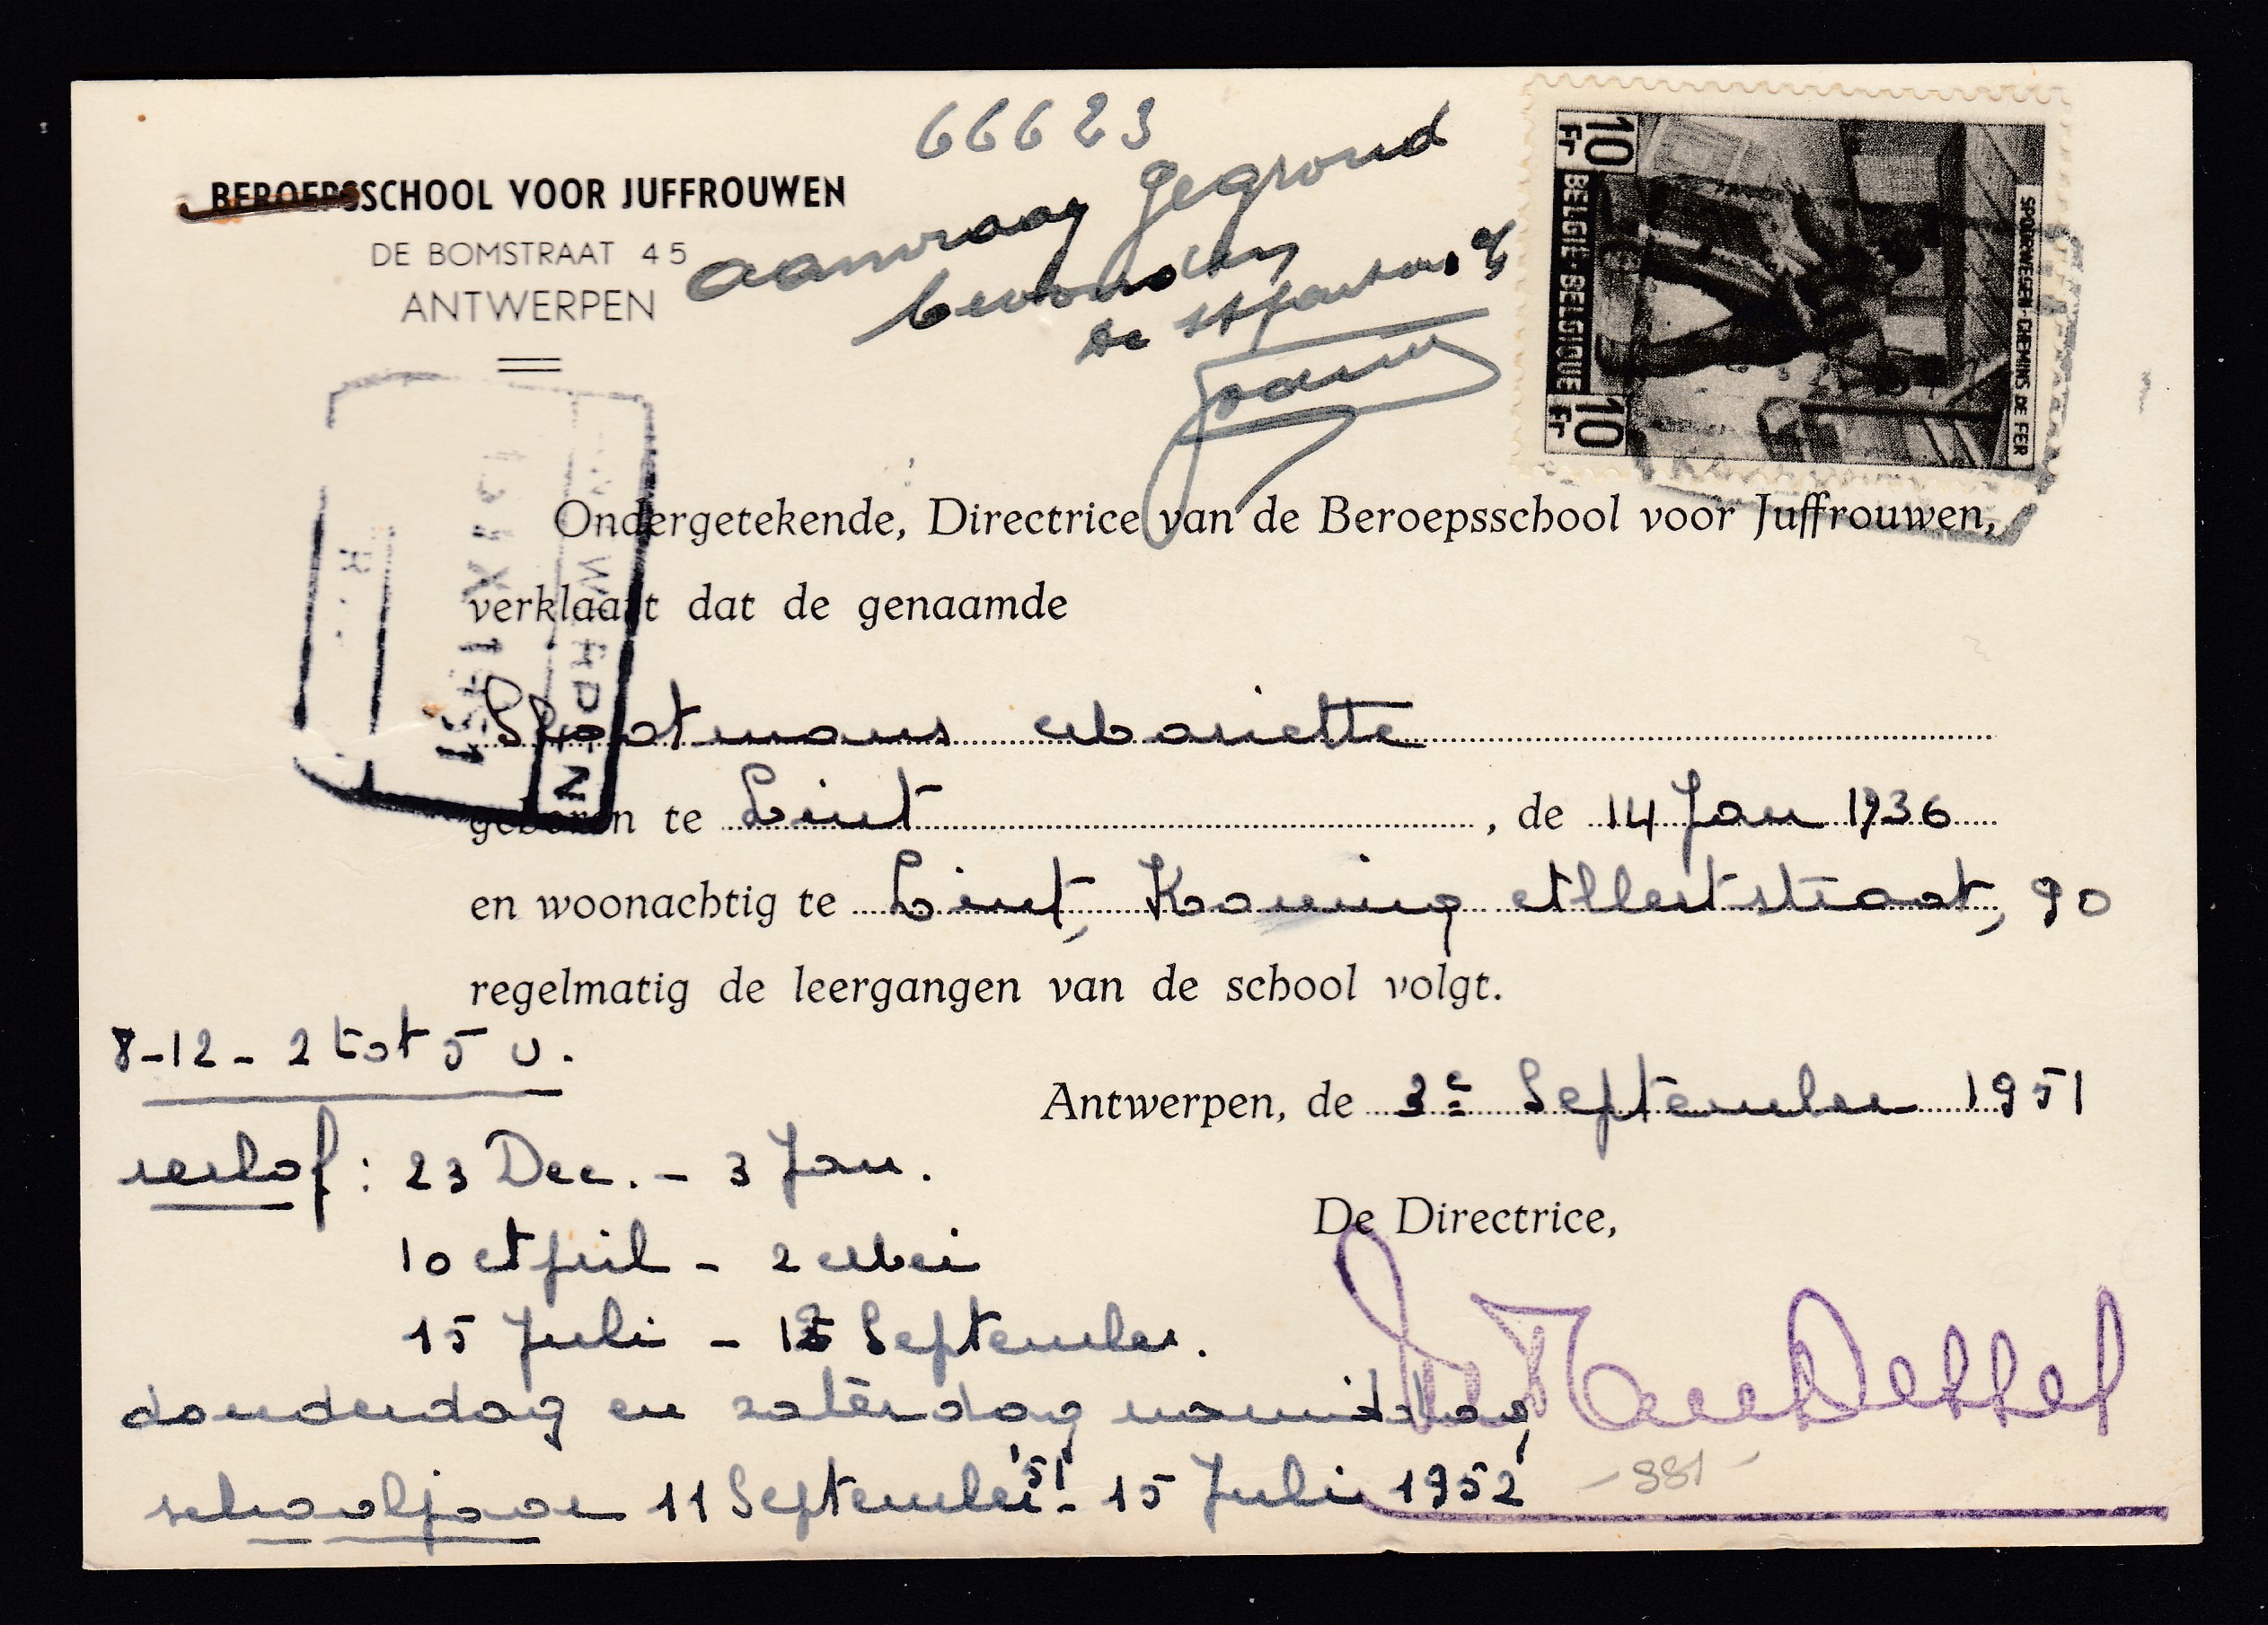 66623
BEROEPSSCHOOL VOOR JUFFROUWEN
DE BOMSTRAAT 45
ANTWERPEN
aanvraag gegrond
bevonden
De
10 Fr BELGIE-BELGIQUE 10 Fr
SPOORWEGEN-CHEMINS DE FER
Ondergetekende, Directrice van de Beroepsschool voor Juffrouwen,
verklaart dat de genaamde
Slootmans Mariette
geboren te Lint, de 14 Jan 1936
en woonachtig te Lint, Koning Albertstraat, 90
regelmatig de leergangen van de school volgt.
8-12 - 2 tot 5 u.
Antwerpen, de 3e September 1951
verlof: 23 Dec. - 3 Jan.
De Directrice,
10 April - 2 Mei
15 Juli - September.
donderdag en zaterdag namiddag
schooljaar 11 September '51 - 15 Juli 1952
- 981 -